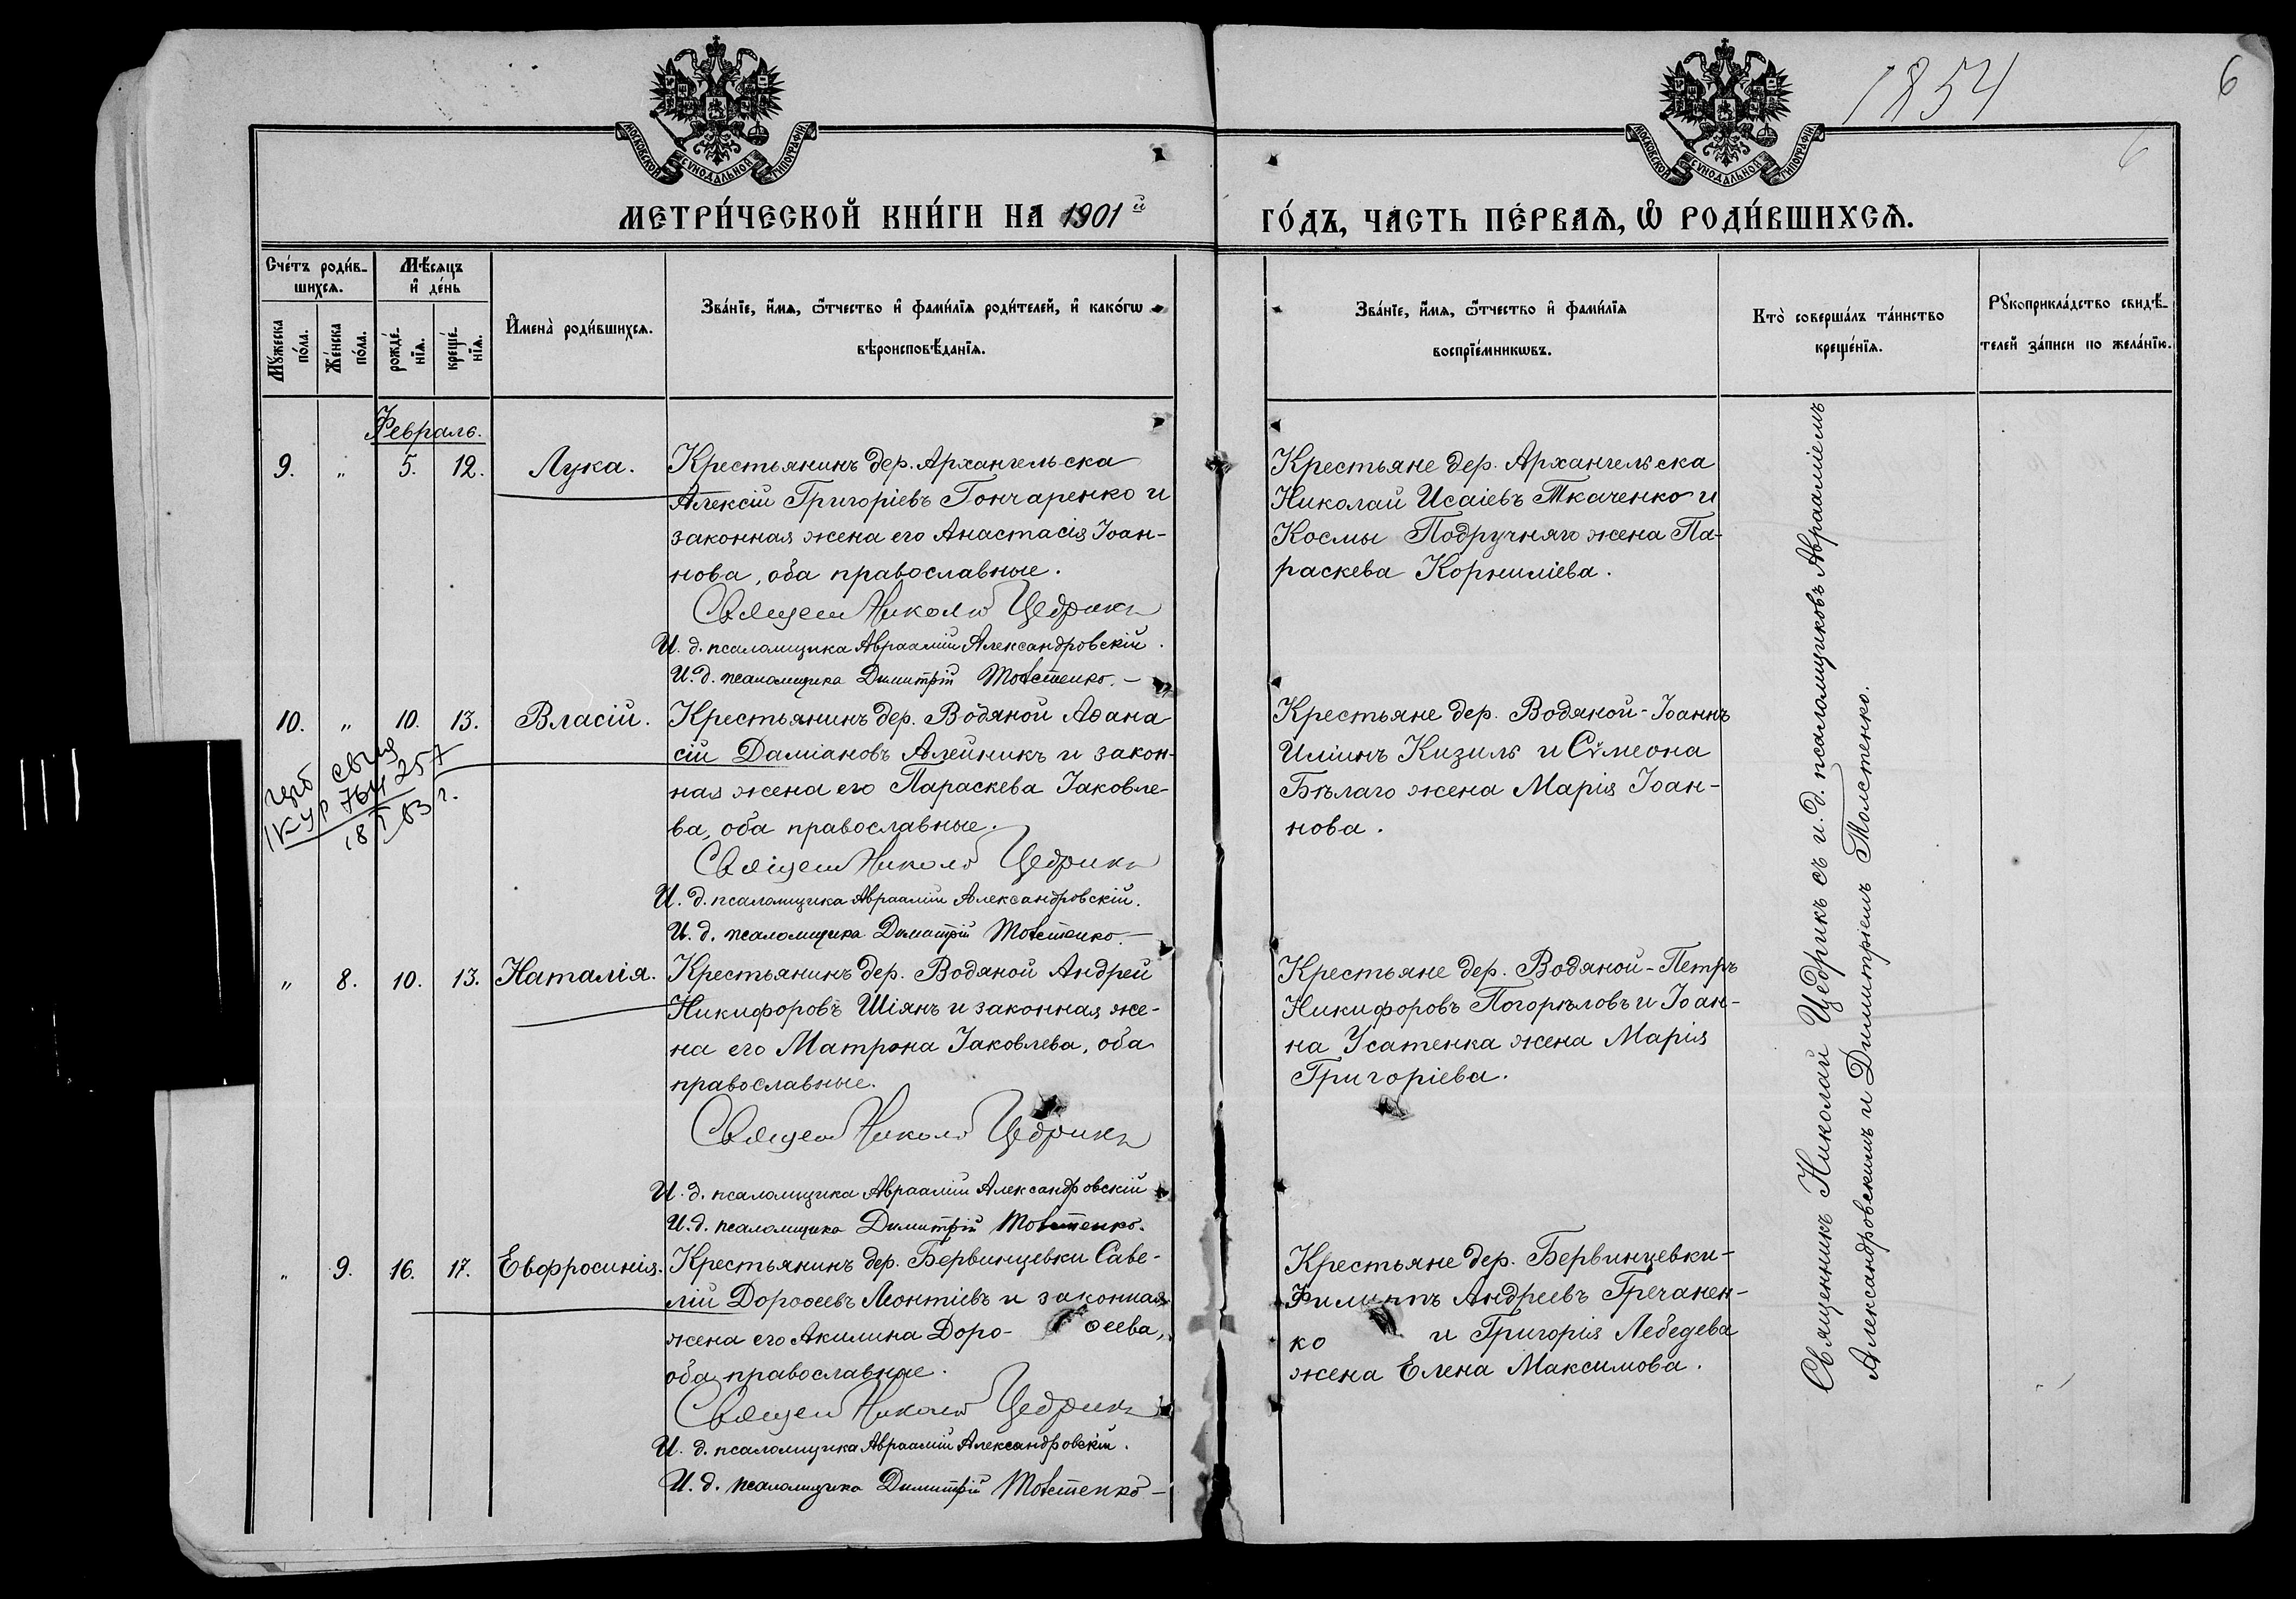 1854
6
6
МОСКОВСКОЙ СѴНОДАЛЬНОЙ ТИПОГРАФІИ
МОСКОВСКОЙ СѴНОДАЛЬНОЙ ТИПОГРАФІИ
МЕТРИ́ЧЕСКОЙ КНИ́ГИ НА 1901й
ГО́ДЪ, ЧА́СТЬ ПЕ́РВАѦ, Ѡ҆ РОДИ́ВШИХСѦ.
Сче́тъ роди́в-
шихсѧ.
Мꙋ́жеска
по́ла.
Же́нска
по́ла.
Мѣ́сѧцъ
и҆ де́нь
рожде́-
нїѧ.
креще́-
нїѧ.
И҆мена̀ роди́вшихсѧ.
Зва́нїе, и҆́мѧ, ѻ҆́тчество и҆ фами́лїѧ роди́телей, и҆ како́гѡ
вѣроисповѣ́данїѧ.
Зва́нїе, и҆́мѧ, ѻ҆́тчество и҆ фами́лїѧ
воспрїе́мникѡвъ.
Кто̀ соверша́лъ та́инство
креще́нїѧ.
Рꙋкоприкла́дство свидѣ́-
телей за́писи по жела́нїю.
Февраль.
9. „ 5. 12. Лука.
Крестьянинъ дер. Архангельска
Алексій Григоріевъ Гончаренко и
законная жена его Анастасія Іоан-
нова, оба православные.
Священ Николай Цедрикъ
И. д. псаломщика Авраамій Александровскій.
И. д. псаломщика Димитрій Толстенко. –
Крестьяне дер. Архангельска
Николай Исаіевъ Ткаченко и
Космы Подручняго жена Па-
раскева Корниліева.
10. „ 10. 13. Власій.
Крестьянинъ дер. Водяной Аѳана
сій Даміановъ Алейникъ и закон-
ная жена его Параскева Іаковле-
ва, оба православные.
Священ Николай Цедрикъ
И. д. псаломщика Авраамій Александровскій.
И. д. псаломщика Димитрій Толстенко. –
Крестьяне дер. Водяной - Іоаннъ
Иліинъ Кизиль и Сѵмеона
Бѣлаго жена Марія Іоан-
нова.
„ 8. 10. 13. Наталія.
Крестьянинъ дер. Водяной Андрей
Никифоровъ Шіянъ и законная же-
на его Матрона Іаковлева, оба
православные.
Священ Николай Цедрикъ
И. д. псаломщика Авраамій Александровскій
И. д. псаломщика Димитрій Толстенко.
Крестьяне дер. Водяной - Петръ
Никифоровъ Погорѣловъ и Іоан-
на Усатенка жена Марія
Григоріева.
„ 9. 16. 17. Евфросинія.
Крестьянинъ дер. Бервинцевки Саве-
лій Дороѳеевъ Леонтіевъ и законная
жена его Акилина Доро- ѳеева,
оба православные.
Священ Николай Цедрикъ
И. д. псаломщика Авраамій Александровскій.
И. д. псаломщика Димитрій Толстенко –
Крестьяне дер. Бервинцевки -
Филиппъ Андреевъ Гречанен-
ко и Григорія Лебедева
жена Елена Максимова.
Священникъ Николай Цедрикъ съ и. д. псаломщиковъ Авраамiемъ
Александровскимъ и Димитріемъ Толстенко.